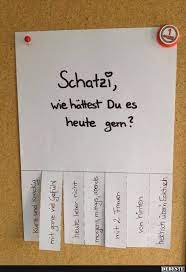 Schatzi,
wie hättest Du es
heute gern?
kurz und knackig
mit ganz viel Gefühl
heute leider nicht
morgens, mittags, abends
mit 2 Frauen
von hinten
einfach
DEBESTE